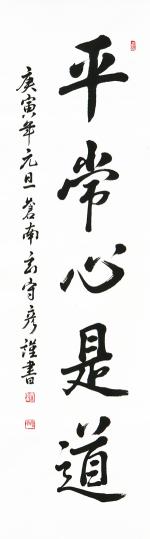 平常心是道
庚寅年元旦蒼南玄守彦謹書